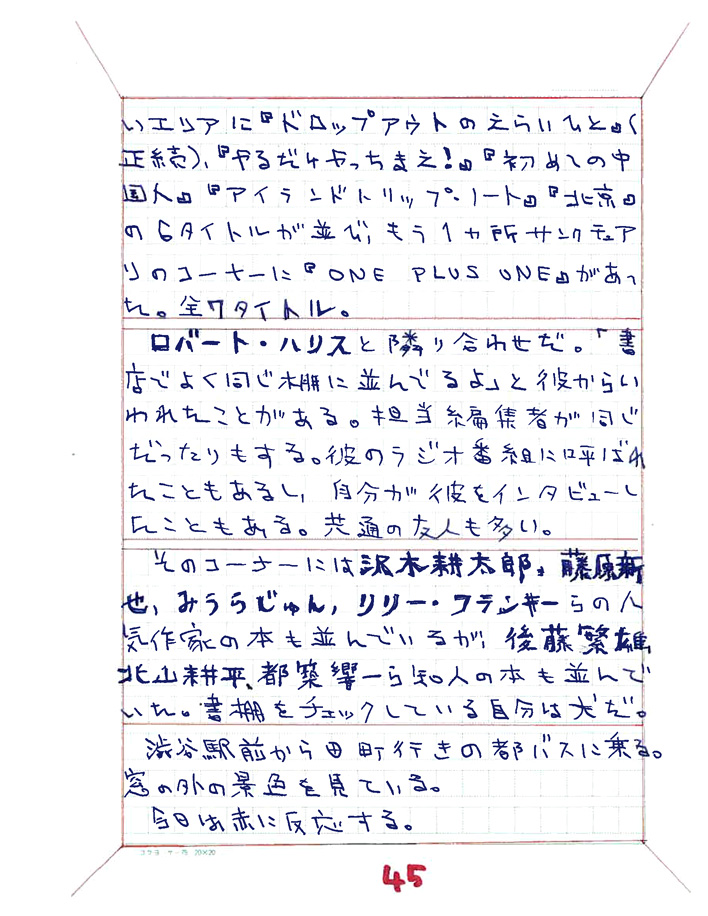 いエリアに『ドロップアウトのえらいひと』(
正続)、『やるだけやっちまえ!』『初めての中
国人』『アイランドトリップ・ノート』『北京』
の6タイトルが並び、もう1ヵ所サンクチュア
リのコーナーに『ONE PLUS ONE』があっ
た。全7タイトル。
ロバート・ハリスと隣り合わせだ。「書
店でよく同じ棚に並んでるよ」と彼からい
われたことがある。担当編集者が同じ
だったりもする。彼のラジオ番組に呼ばれ
たこともあるし、自分が彼をインタビューし
たこともある。共通の友人も多い。
そのコーナーには沢木耕太郎、藤原新
也、みうらじゅん、リリー・フランキーらの人
気作家の本も並んでいるが、後藤繁雄、
北山耕平、都築響一ら知人の本も並んで
いた。書棚をチェックしている自分は犬だ。
渋谷駅前から田町行きの都バスに乗る。
窓の外の景色を見ている。
今日は赤に反応する。
コクヨ ケ-75 20×20
45